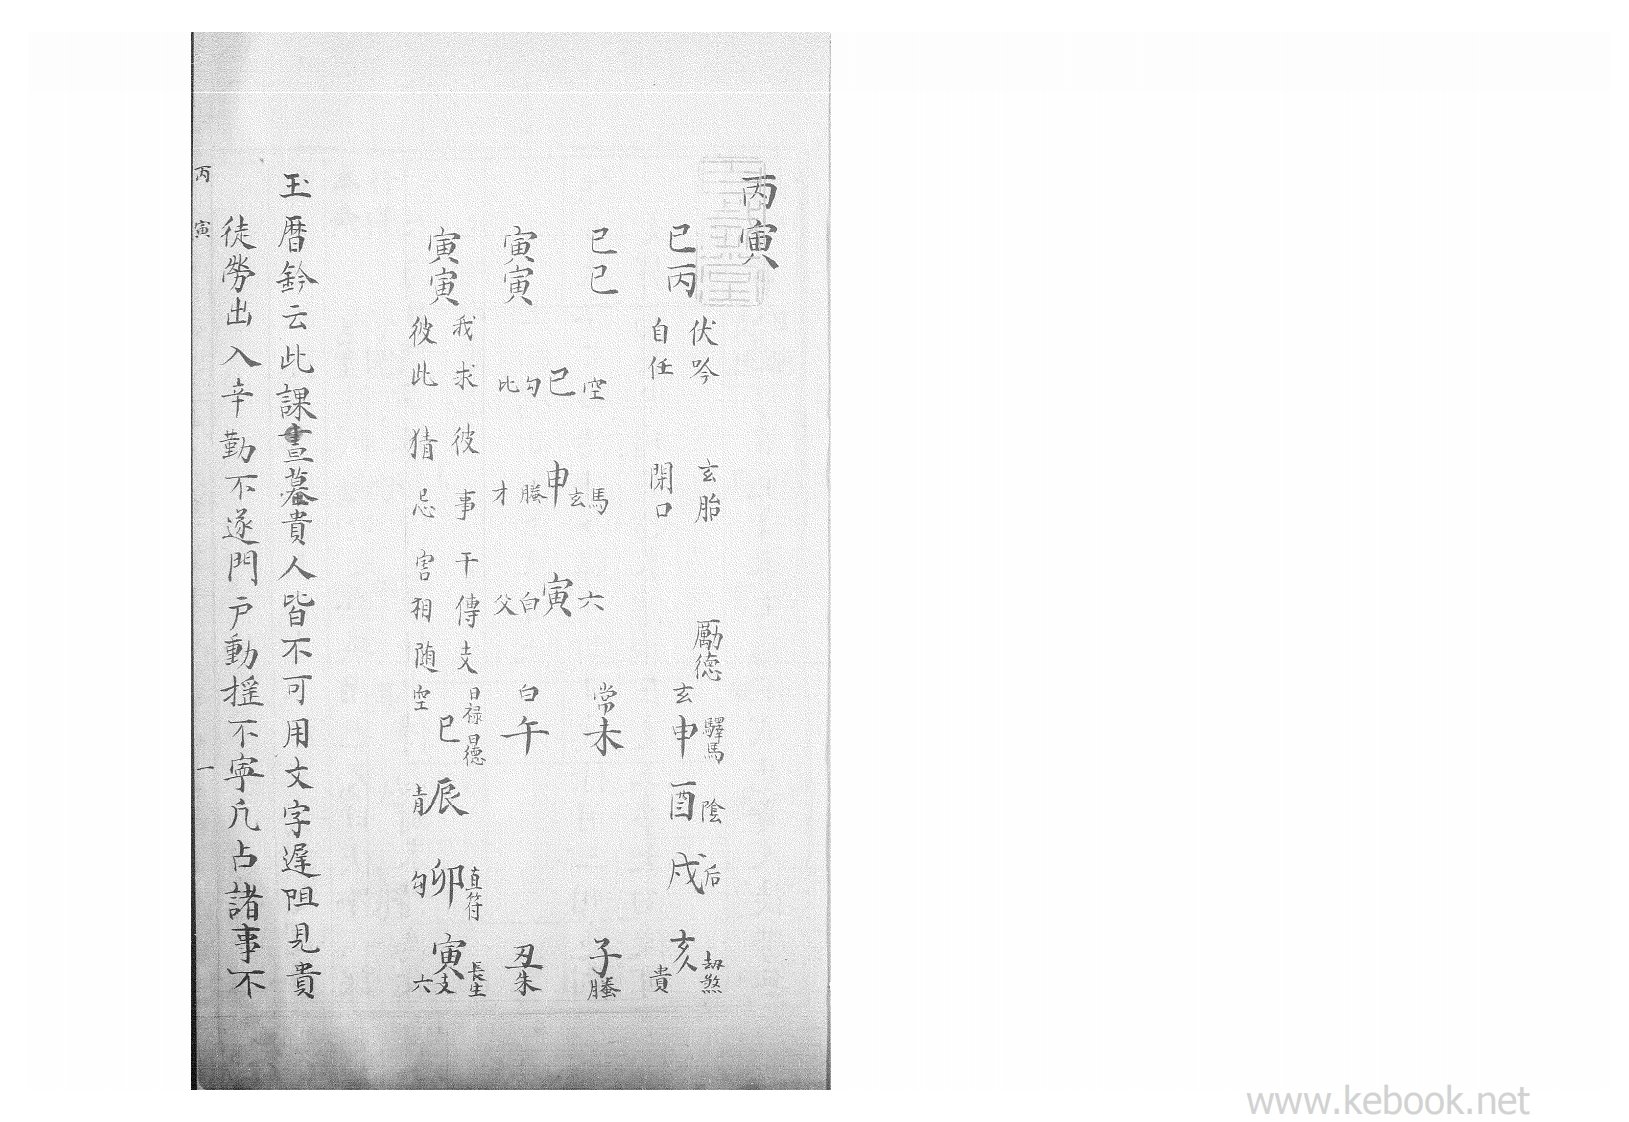 丙寅
伏吟 玄胎 勵德
自任 閉口
巳丙
巳巳
寅寅
寅寅
空 巳 勾 比
馬 玄 申 螣 才
六 寅 白 父
我求彼事干傳支
彼此猜忌害相隨
驛馬 申 玄
陰 酉
后 戌
劫煞 亥 貴
常 未
子 螣
白 午
丑 朱
日祿 日德 巳 空
辰 青
直符 卯 勾
長生 寅 支 六
玉曆鈐云此課晝墓貴人皆不可用文字遲阻見貴
徒勞出入辛勤不遂門戶動搖不寧凡占諸事不
丙寅 一
www.kebook.net